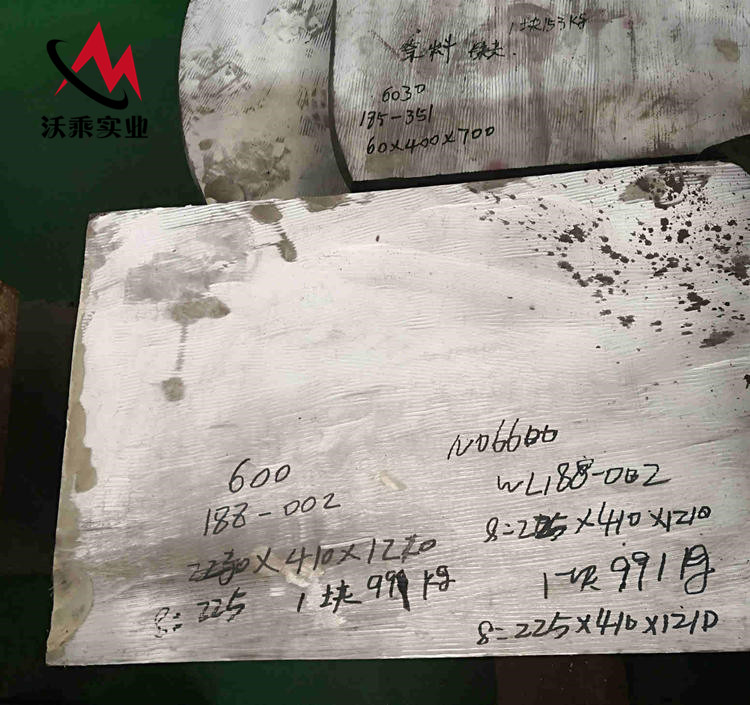 沃乘实业
1块153kg
6030
185-351
60×400×700
600
188-002
×410×12
δ=225 1块991kg
N06600
WL188-002
δ=225×410×1210
1块991kg
δ=225×410×1210